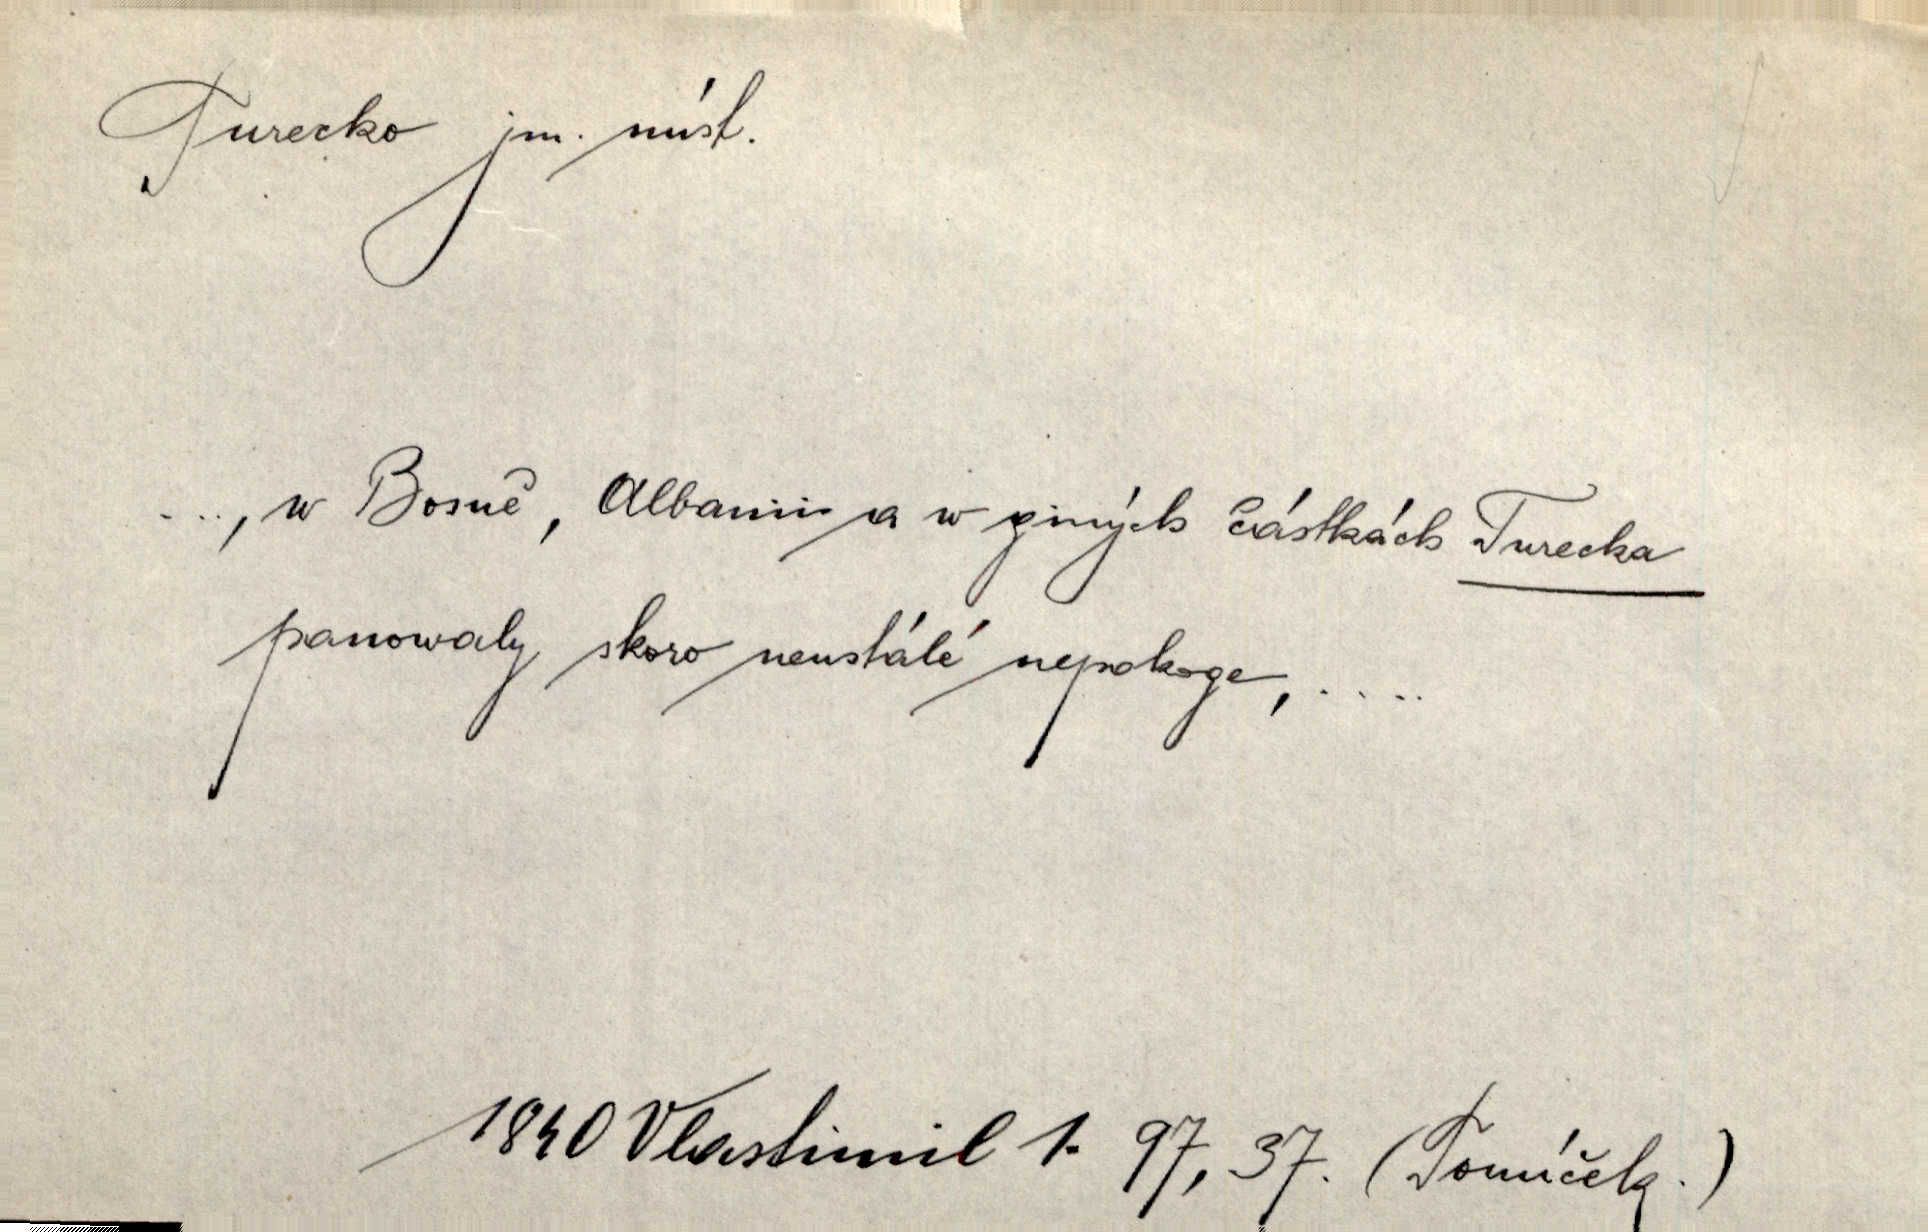 Turecko jm. míst.
...., w Bosně, Albanii a w giných částkách Turecka
panowaly skoro neustálé nepokoge, .....
1840 Vlastimil 1. 97, 37. (Tomíček.)